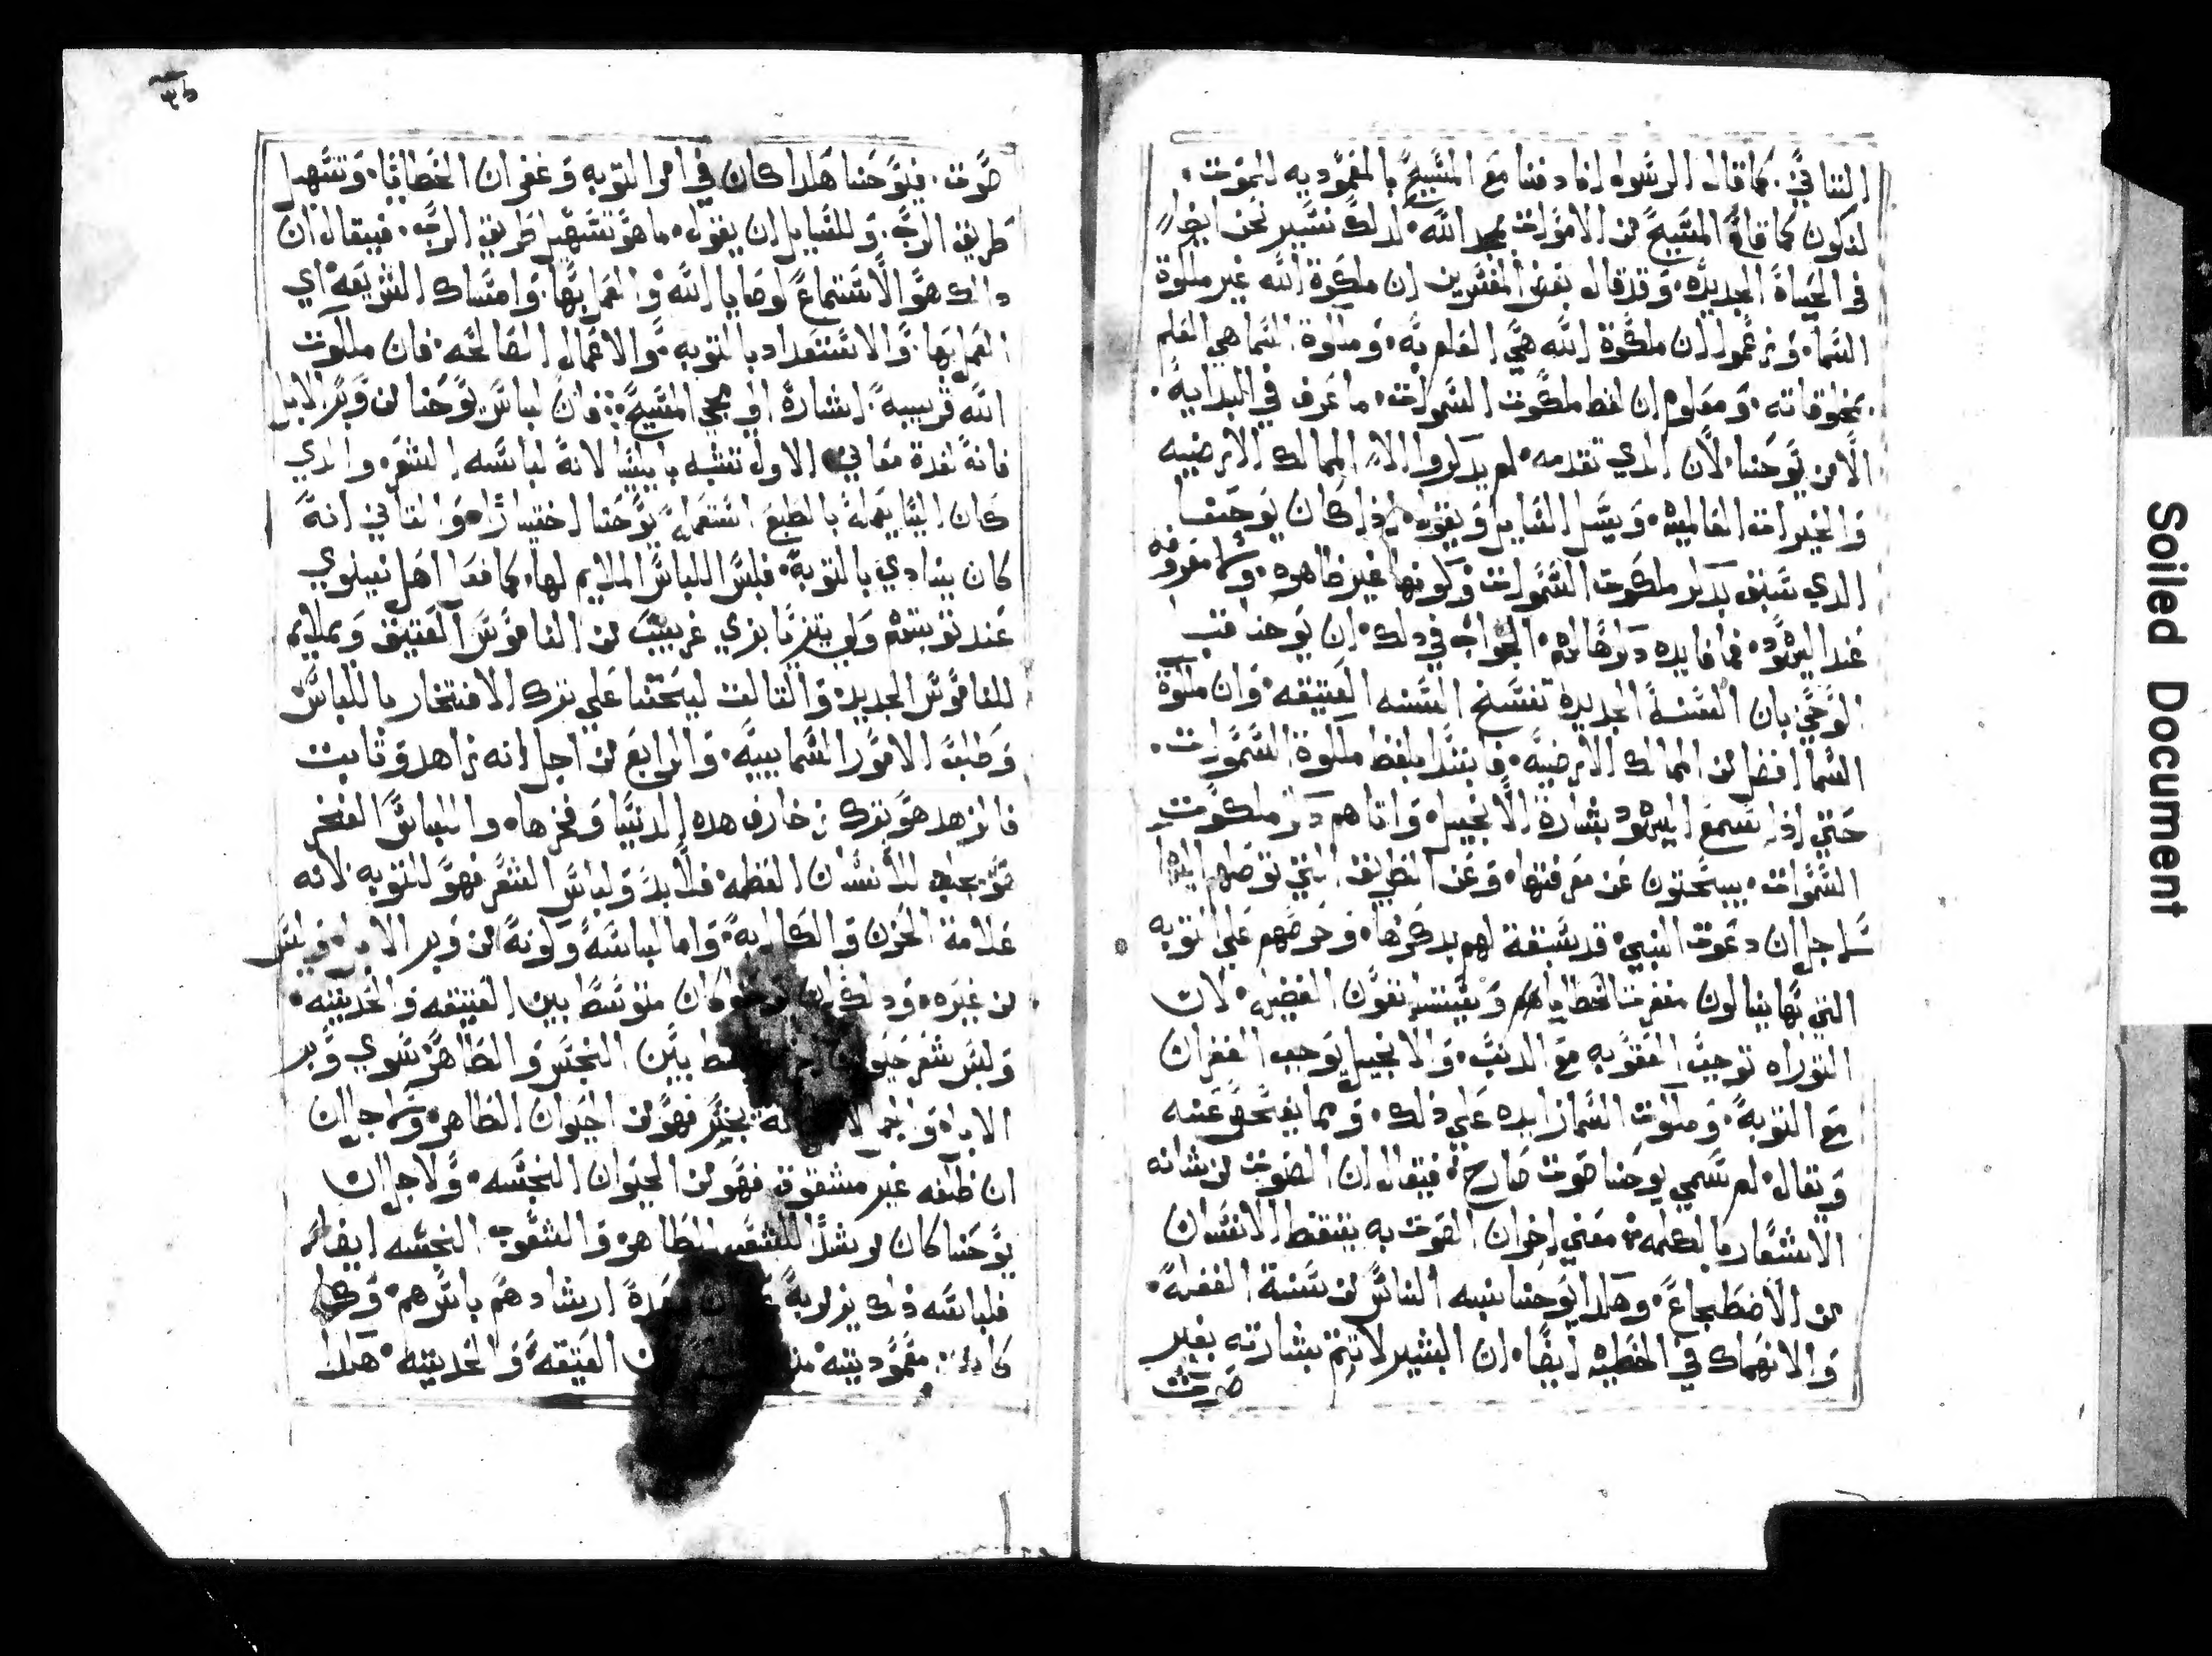 التاني. كما قال الرسول اننا دفنا مع المسيح بالمعموديه للموت.
لنكون كما قام المسيح من الاموات بمجد الله. لدلك نسير نحن ايضا
في الحياة الجديده. وقد قال بعض المفسرين ان ملكوة الله غير ملكوة
السما. وزعموا ان ملكوة الله هي العلم به. وملكوة السما هي العلم
بمخلوقاته. ومعلوم ان لفظ ملكوت السموات. ما عرف في البدايه.
الا من يوحنا. لان الدي تقدمه. لم يدكروا الا الممالك الارضيه
والخيرات العالميه. ويسل السايل ويقول. اذا كان يوحنا
الدي سبق بدكر ملكوت السموات وكونها غير ظاهره. ولا معروفه
عند اليهود. فما فايده دكرها لهم. الجواب في دلك. ان يوحنا
الوحي بان السنة الجديده تنسخ السنه العتيقه. وان ملكوة
السما افضل من الممالك الارضيه. فابتدا بلفظ ملكوة السموات.
حتي اذا سمع اليهود بشارة الانجيل. واتاهم دكر ملكوت
السموات. يبحتون عن معرفتها. وعن الطريق التي توصلهم اليها
من اجل ان دعوت النبي. قد سبقة لهم بدكرها. وحرضهم علي التوبه
التي بها ينالون مغفرت الخطايا لان
التوراه توجب العقوبه مع الدنب. والانجيل يوجب الغفران
مع التوبة. وملكوت السما زايده علي ذلك. ومما يفحص عنه
ويقال. لم سمي يوحنا صوت صارخ. فيقال ان الصوت من شانه
الاشعار بالكلمه. معني اخر ان الصوت به يتيقظ الانسان
من الاضطجاع. وهكدا يوحنا ينبه الناس من سنة الغفلة.
والانهماك في الخطيه ايضا. ان البشير لا تتم بشارته بغير
صوت
صوت. فيوحنا هكدا كان في امر التوبه وغفران الخطايا. وتسهيل
طريق الرب. وللسايل ان يقول. ما هو تسهيل طريق الرب. فيقال ان
دالك هو الاستماع لوصايا الله والعمل بها. وامتساك الشريعه اي
العمل بها. والاستعداد بالتوبه. والاعمال الصالحه. فان ملكوت
الله قريبة. اشارة الي مجي المسيح. فان لباس يوحنا من وبر الابل
فانه لعدة معاني. الاول تشبه بايليا لانه لباسه الشعر. والدي
كان ايليا يعمله بالطبع استعمله يوحنا اختيارا. والتاني انه
كان ينادي بالتوبة. فلبس اللباس الملايم لها. كما فعلوا اهل نينوي
عند توبتهم ولم يتزيا بزي غريب من الناموس العتيق وملايم
للناموس الجديد. والتالت ليحتنا علي ترك الافتخار باللباس
وطلب الامور السماييه. والرابع من اجل انه زاهد وتابت
فالزهد هو ترك زخارف هده الدنيا وفخرها. واللباس الفخر
للانسان العظمه. فلابد ولباس الشعر فهو للتوبه لانه
علامة الحزن والكابه. واما لباسه وكونه من وبر الابل. وليس
من غيره. ودلك كان متوسط بين العتيقه والحديته.
ولبس شعر حيوان بين النجس والطاهر سوي وبر
الابل نجس فهو من الحيوان الطاهر. ومن اجل ان
ان ظلفه غير مشقوق فهو من الحيوان النجسه. ولاجل ان
يوحنا كان مرشدا للشعب الطاهره والشعوب النجسه ايضا.
فلباسه ذلك ارشادهم باسرهم. وكما
كانت معموديته العتيقه والحديته. هكدا